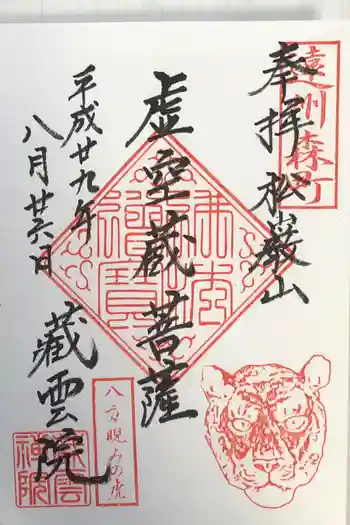 遠州森町
奉拝 松巖山
虚空蔵菩薩
平成廿九年
八月廿六日
蔵雲院
八方睨みの虎